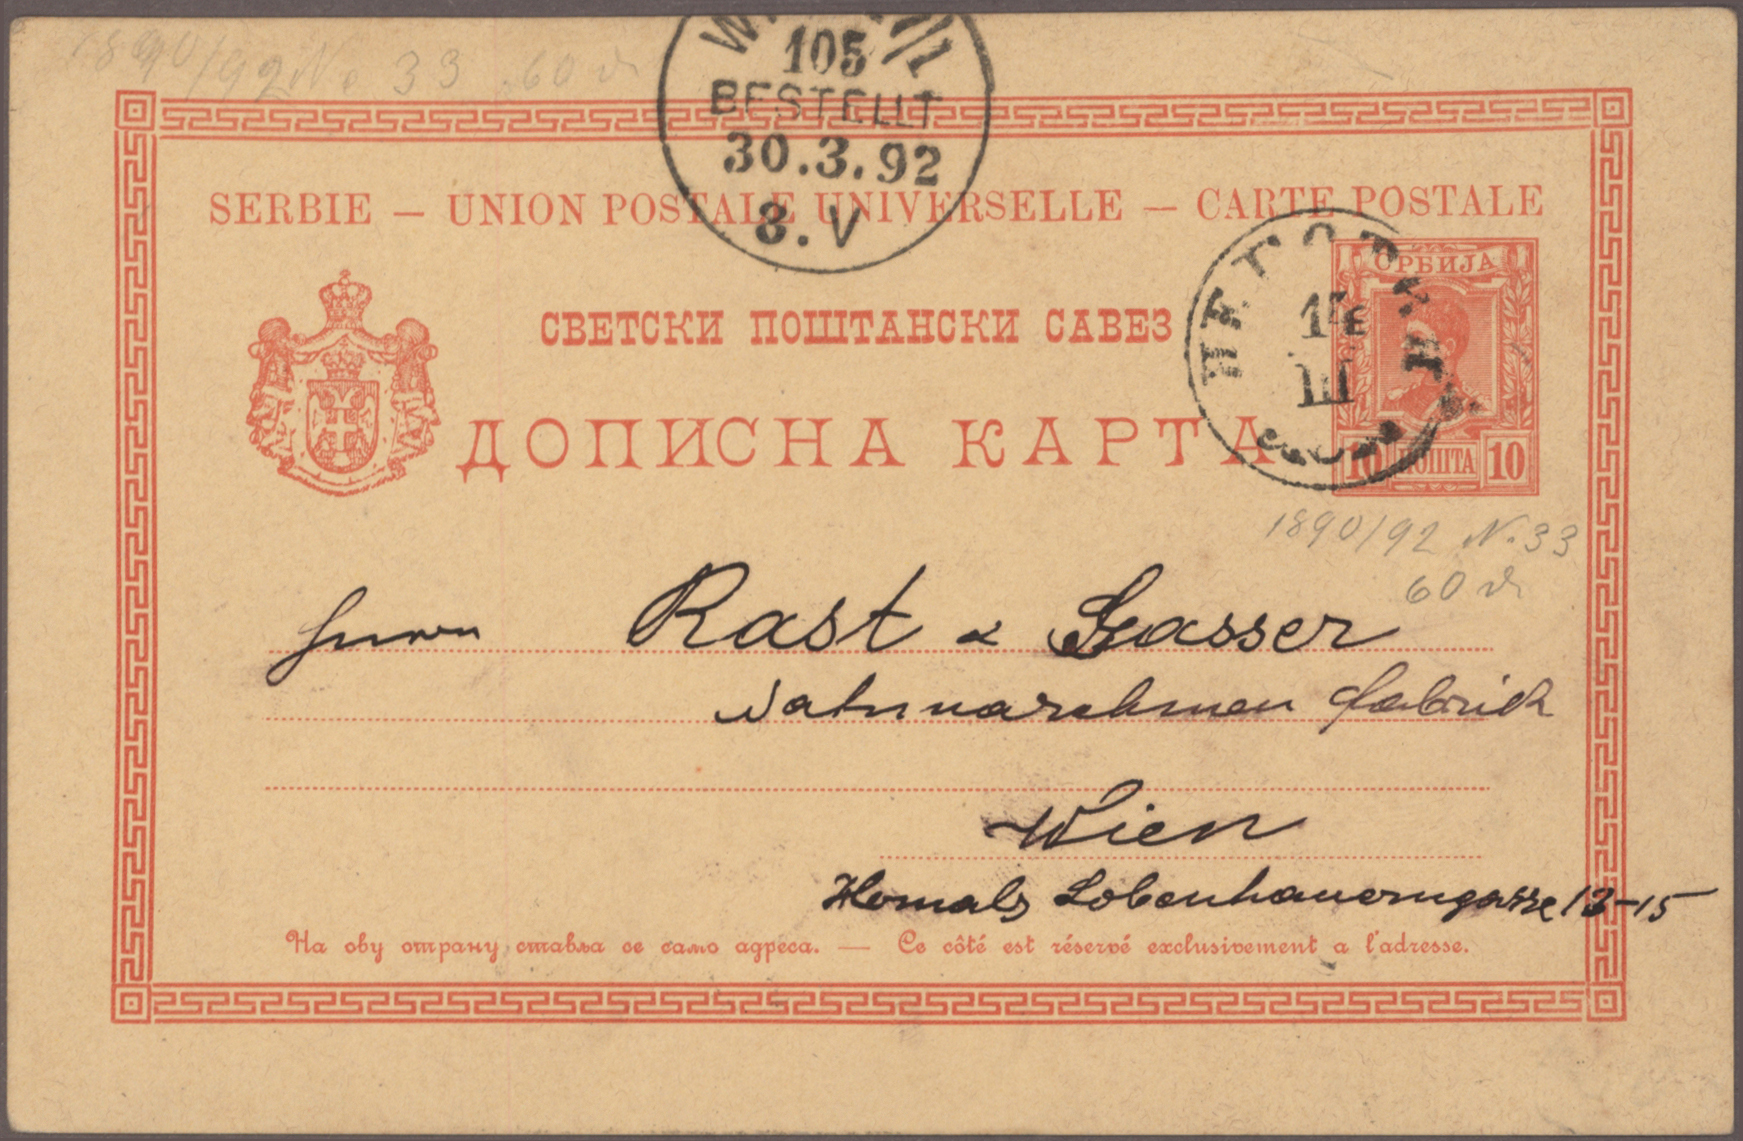 1890/92 No 33 60 d
105
BESTELLT
30.3.92
8. V
SERBIE — UNION POSTALE UNIVERSELLE — CARTE POSTALE
СВЕТСКИ ПОШТАНСКИ САВЕЗ
ДОПИСНА КАРТА
СРБИЈА
10 ПОШТА 10
НЕГОТИН
III
1890/92 N. 33
60 d
Herrn Rast & Gasser
Nähmaschinen Fabrick
Wien
Hernals Lobenhauerngasse 13-15
На ову страну ставља се само адреса. — Ce côté est réservé exclusivement a l'adresse.